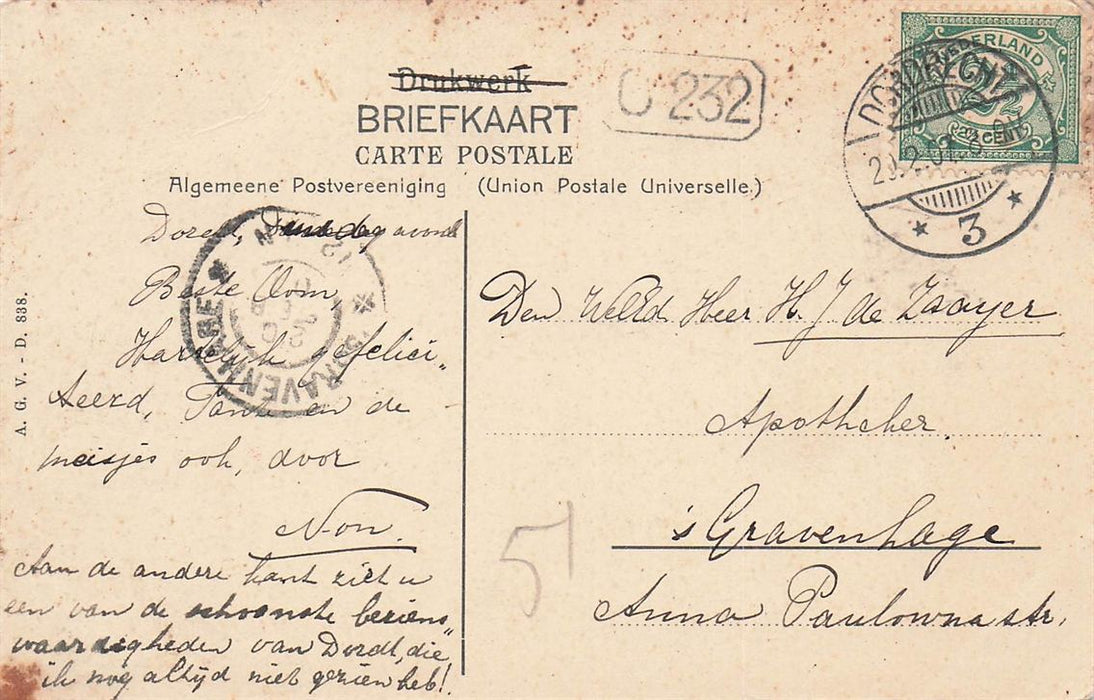 Drukwerk
BRIEFKAART
CARTE POSTALE
Algemeene Postvereeniging (Union Postale Universelle.)
C 232
NEDERLAND
2½
CENT
DORDRECHT
3
'SGRAVENHAGE
A. G. V. - D. 838.
Dordt, Dinsdag avond
Beste Oom,
Hartelijk gefelici„
teerd, Tante en de
meisjes ook, door
Non.
Aan de andere kant ziet u
een van de schoonste beziens„
waardigheden van Dordt, die
ik nog altijd niet gezien heb!
Den WelEd Heer H. J de
Apotheker
's Gravenhage
Anna Paulownastr.
51